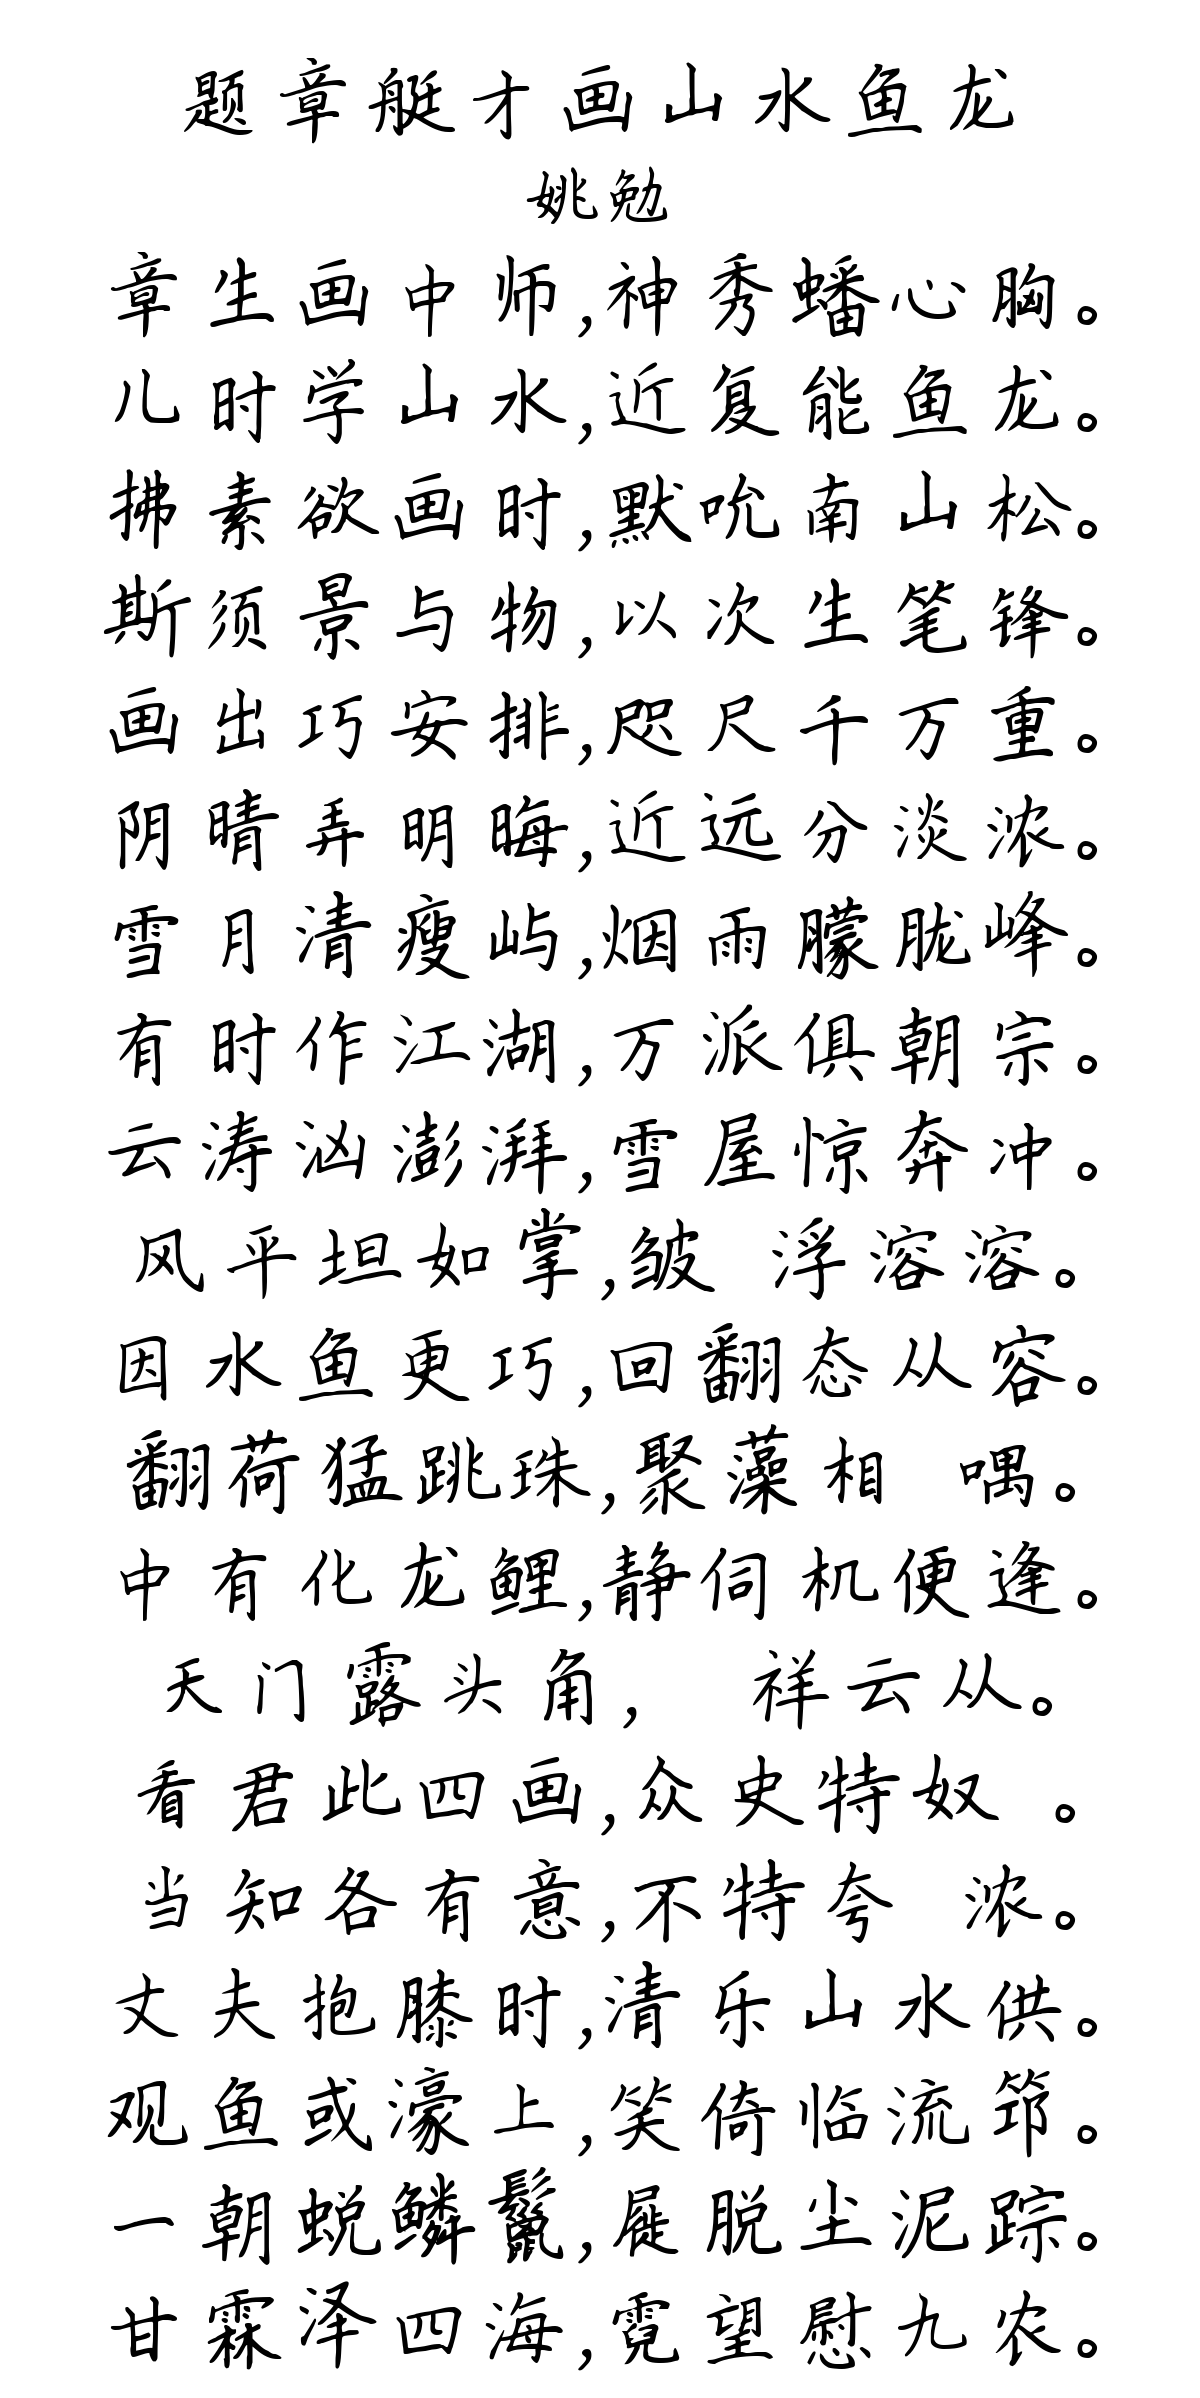 题章艇才画山水鱼龙
姚勉
章生画中师,神秀蟠心胸。
儿时学山水,近复能鱼龙。
拂素欲画时,默吮南山松。
斯须景与物,以次生笔锋。
画出巧安排,咫尺千万重。
阴晴弄明晦,近远分淡浓。
雪月清瘦屿,烟雨朦胧峰。
有时作江湖,万派俱朝宗。
云涛汹澎湃,雪屋惊奔冲。
风平坦如掌,皱 浮溶溶。
因水鱼更巧,回翻态从容。
翻荷猛跳珠,聚藻相 喁。
中有化龙鲤,静伺机便逢。
天门露头角, 祥云从。
看君此四画,众史特奴 。
当知各有意,不特夸 浓。
丈夫抱膝时,清乐山水供。
观鱼或濠上,笑倚临流筇。
一朝蜕鳞鬣,屣脱尘泥踪。
甘霖泽四海,霓望慰九农。